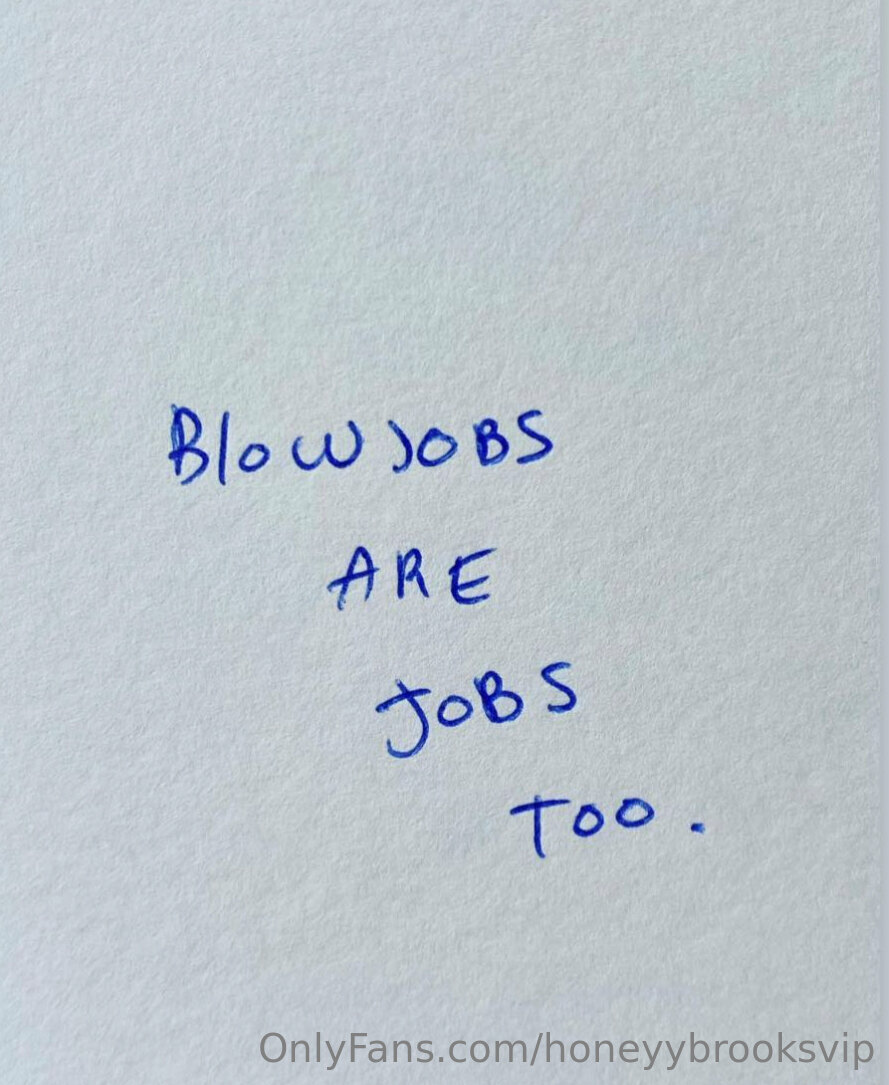 BlowJOBS
ARE
JOBS
TOO.
OnlyFans.com/honeyybrooksvip